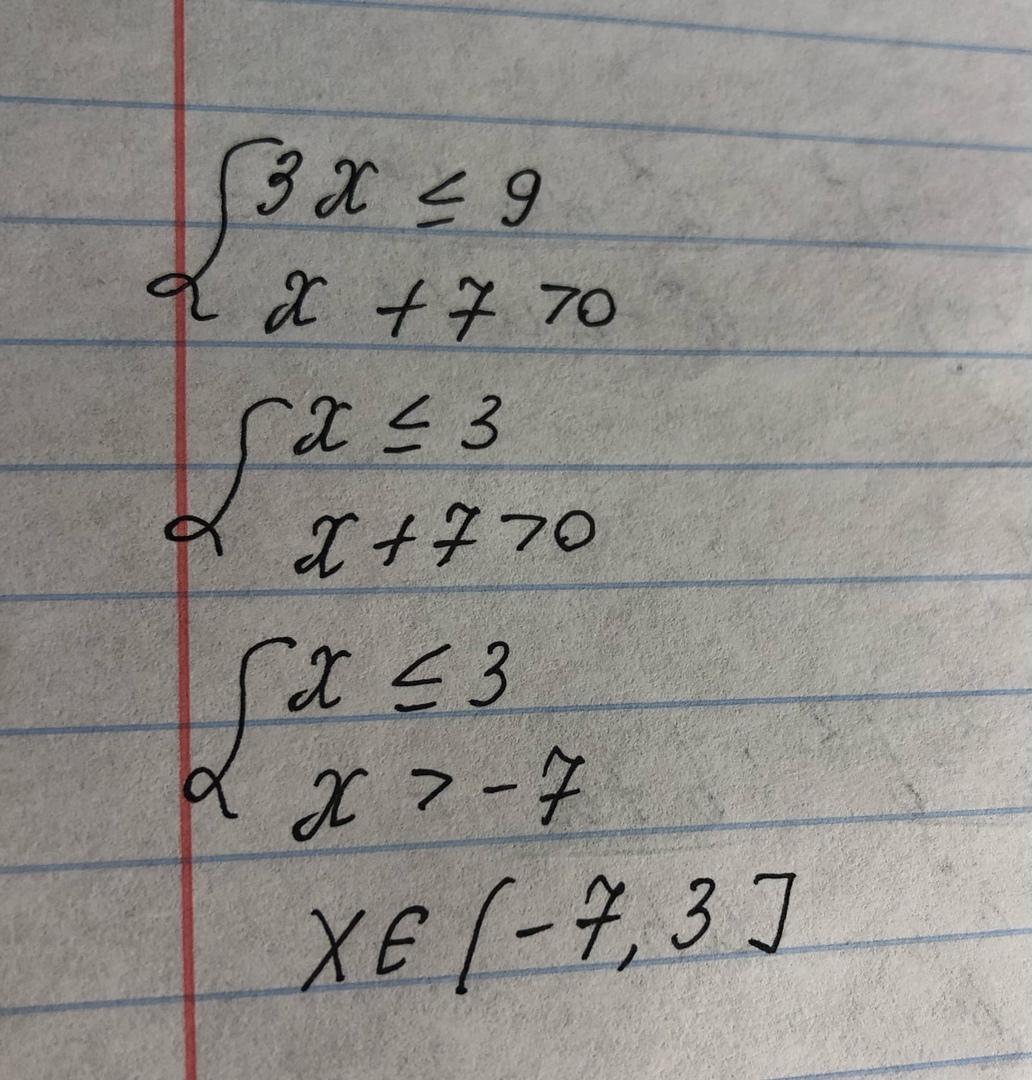 {3x ≤ 9
x + 7 >0
{x ≤ 3
x + 7 >0
{x ≤ 3
x > -7
X∈ [-7, 3]